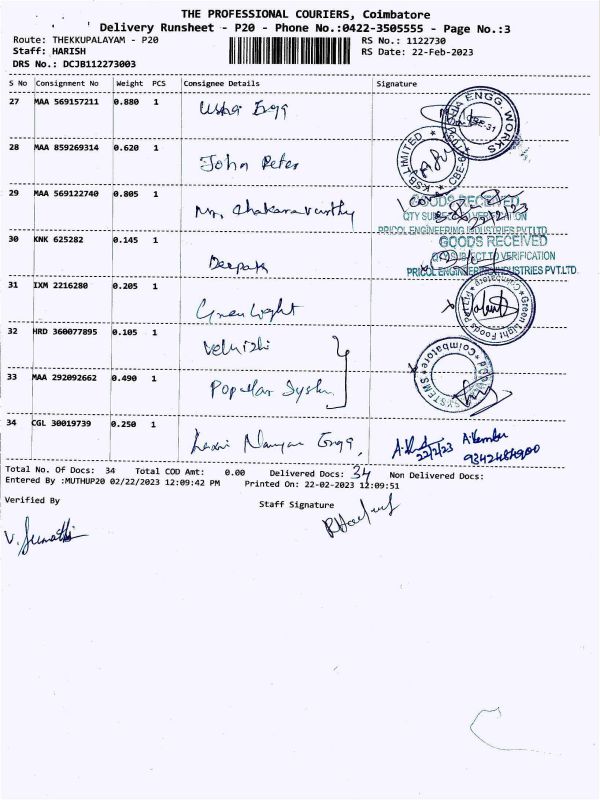 THE PROFESSIONAL COURIERS, Coimbatore
Delivery Runsheet - P20 - Phone No.:0422-3505555 - Page No.:3
Route: THEKKUPALAYAM - P20 RS No.: 1122730
Staff: HARISH RS Date: 22-Feb-2023
DRS No.: DCJB112273003
S No Consignment No Weight PCS Consignee Details Signature
27 MAA 569157211 0.880 1 Usha Engg
USHA ENGG. WORKS
28 MAA 859269314 0.620 1 John Peter
KSB LIMITED
29 MAA 569122740 0.805 1 Mr. Chakaravarthy
GOODS RECEIVED
QTY SUBJECT TO VERIFICATION
22/2/23
PRICOL ENGINEERING INDUSTRIES PVT.LTD.
30 KNK 625282 0.145 1 Deepak
GOODS RECEIVED
QTY SUBJECT TO VERIFICATION
PRICOL ENGINEERING INDUSTRIES PVT.LTD.
31 IXM 2216280 0.205 1 Green Light
Green Light Foods Coimbatore
32 HRD 360077895 0.105 1
33 MAA 292092662 0.490 1 Popular System
SYSTEMS Coimbatore
34 CGL 30019739 0.250 1 Laxmi Narayan Engg,
22/2/23
Total No. Of Docs: 34 Total COD Amt: 0.00 Delivered Docs: 34 Non Delivered Docs:
Entered By :MUTHUP20 02/22/2023 12:09:42 PM Printed On: 22-02-2023 12:09:51
Verified By Staff Signature
V. Sumathi